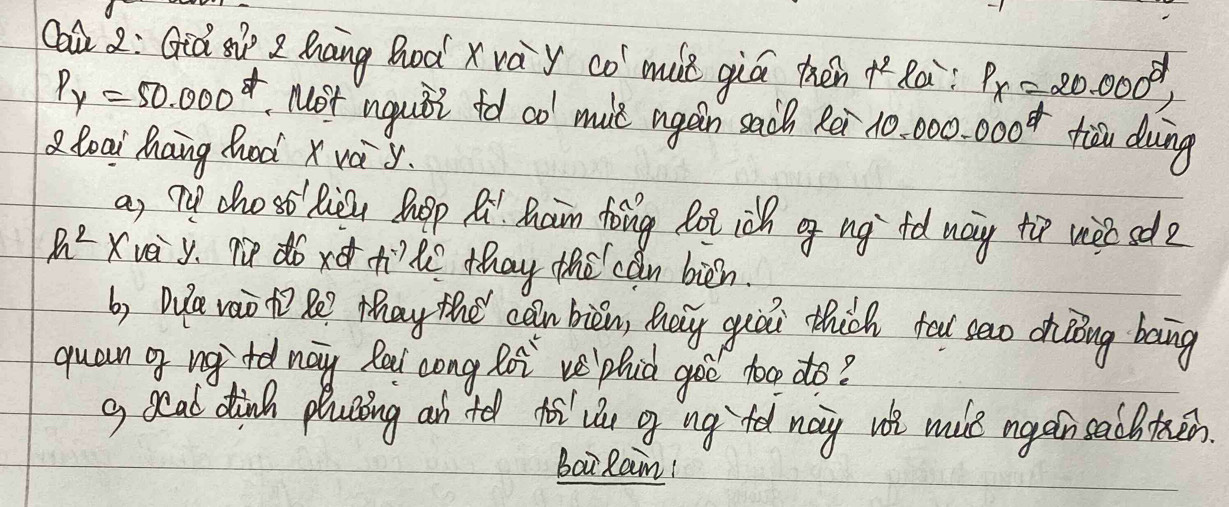 Câu 2: Giả sử 2 hàng hoá X và Y có mức giá trên t² là: Px = 20.000đ,
PY = 50.000đ. Một người td có mức ngân sách là 10.000.000đ tiêu dùng
2 loại hàng hoá X và Y.
a, Tự cho số liệu hợp lí hàm tổng lợi ích of ng` td này từ việc sd 2
h² X và Y. Từ đó xđ tỉ lệ thay thế cận biên.
b, Dựa vào tỉ lệ thay thế cận biên, hãy giải thích tại sao đường bàng
quan of ng` td này lại cong lồi về phía gốc toạ độ?
c, Xác định phương án td tối ưu of ng` td này với mức ngân sách trên.
Bài làm: